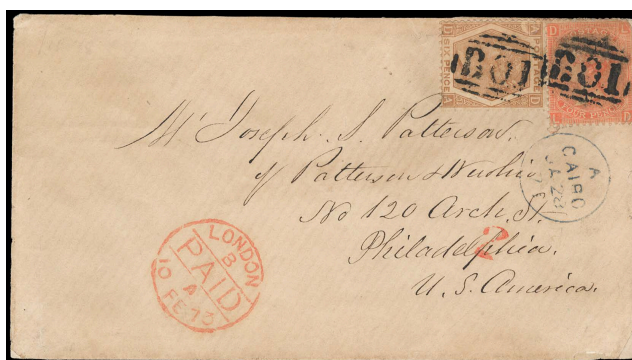 SIX PENCE
POSTAGE
B01
B01
Mr Joseph S. Patterson.
of Patterson &
No 120 Arch. St.
Philadelphia.
U. S. America.
2
A
CAIRO
LONDON
B
PAID
A
10 FE 70